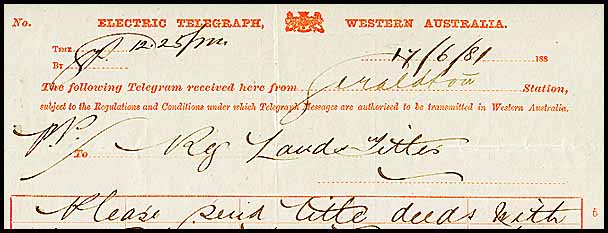 No. ELECTRIC TELEGRAPH, WESTERN AUSTRALIA.
TIME 12.25 pm. 17/6/81 188
BY
The following Telegram received here from Geraldton Station,
subject to the Regulations and Conditions under which Telegraph Messages are authorised to be transmitted in Western Australia.
To Reg Lands Titles
Please send title deeds with
6